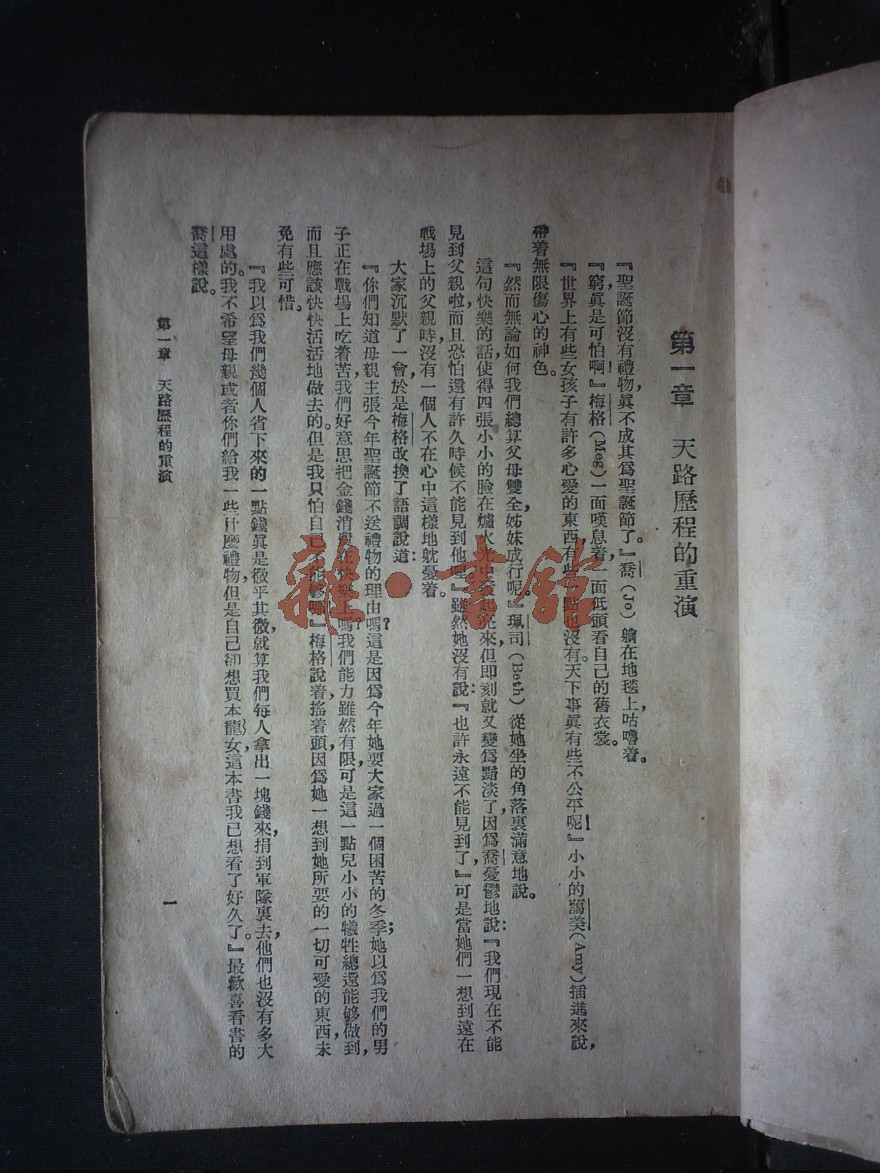 第一章　天路歷程的重演
『聖誕節沒有禮物，眞不成其爲聖誕節了。』喬（Jo）躺在地毯上咕嚕着。
『窮眞是可怕啊！』梅格（Meg）一面嘆息着，一面低頭看自己的舊衣裳。
『世界上有些女孩子有許多心愛的東西，有些一點也沒有。天下事眞有些不公平呢！』小小的藹美（Amy）插進來說，
帶着無限傷心的神色。
『然而無論如何，我們總算父母雙全，姊妹成行呢。』珮司（Beth）從她坐的角落裏滿意地說。
這句快樂的話，使得四張小小的臉在爐火光中來，但卽刻就又變爲黯淡了，因爲喬憂鬱地說：『我們現在不能
見到父親啦，而且恐怕還有許久時候不能見到他哩。』雖然她沒有說：『也許永遠不能見到了，』可是當她們一想到遠在
戰場上的父親時，沒有一個人不在心中這樣地躭憂着。
大家沉默了一會，於是梅格改換了語調說道：
『你們知道母親主張今年聖誕節不送禮物的理由嗎？這是因爲今年她要大家過一個困苦的冬季；她以爲我們的男
子正在戰場上吃着苦，我們好意思把金錢消費在快樂上嗎？我們能力雖然有限，可是這一點兒小小的犧牲總還能够做到，
而且應該快快活活地做去的。但是我只怕自己不能够哪。』梅格說着，搖着頭，因爲她一想到她所要的一切可愛的東西，未
免有些可惜。
『我以爲我們幾個人省下來的一點錢眞是微乎其微，就算我們每人拿出一塊錢來，捐到軍隊裏去，他們也沒有多大
用處的。我不希望母親或者你們給我一些什麼禮物，但是自己卻想買本龍女，這本書我已想看了好久了。』最歡喜看書的
喬這樣說。
第一章　天路歷程的重演
一
雜·書館